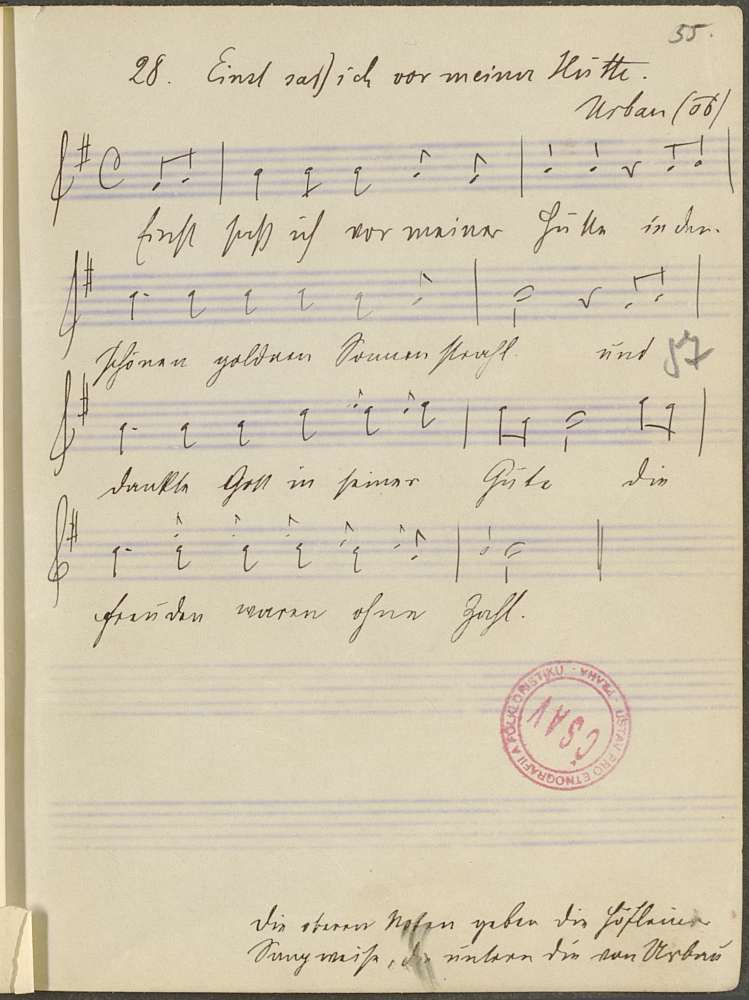 55.
28. Einst saß ich vor meiner Hütte.
Urban (öb)
Einst saß ich vor meiner Hütte in der
schönen goldnen Sonnenstrahl. und
57
dankte Gott in seiner Güte die
Freuden waren ohne Zahl.
ÚSTAV PRO ETNOGRAFII A FOLKLORISTIKU - PRAHA -
ČSAV
Die oberen Noten geben die Höfleiner
Sangweise, die untern die von Urbau